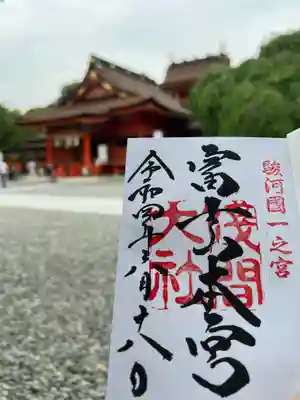 駿河國一之宮
富士本宮
淺間
大社
令和四年六月十八日